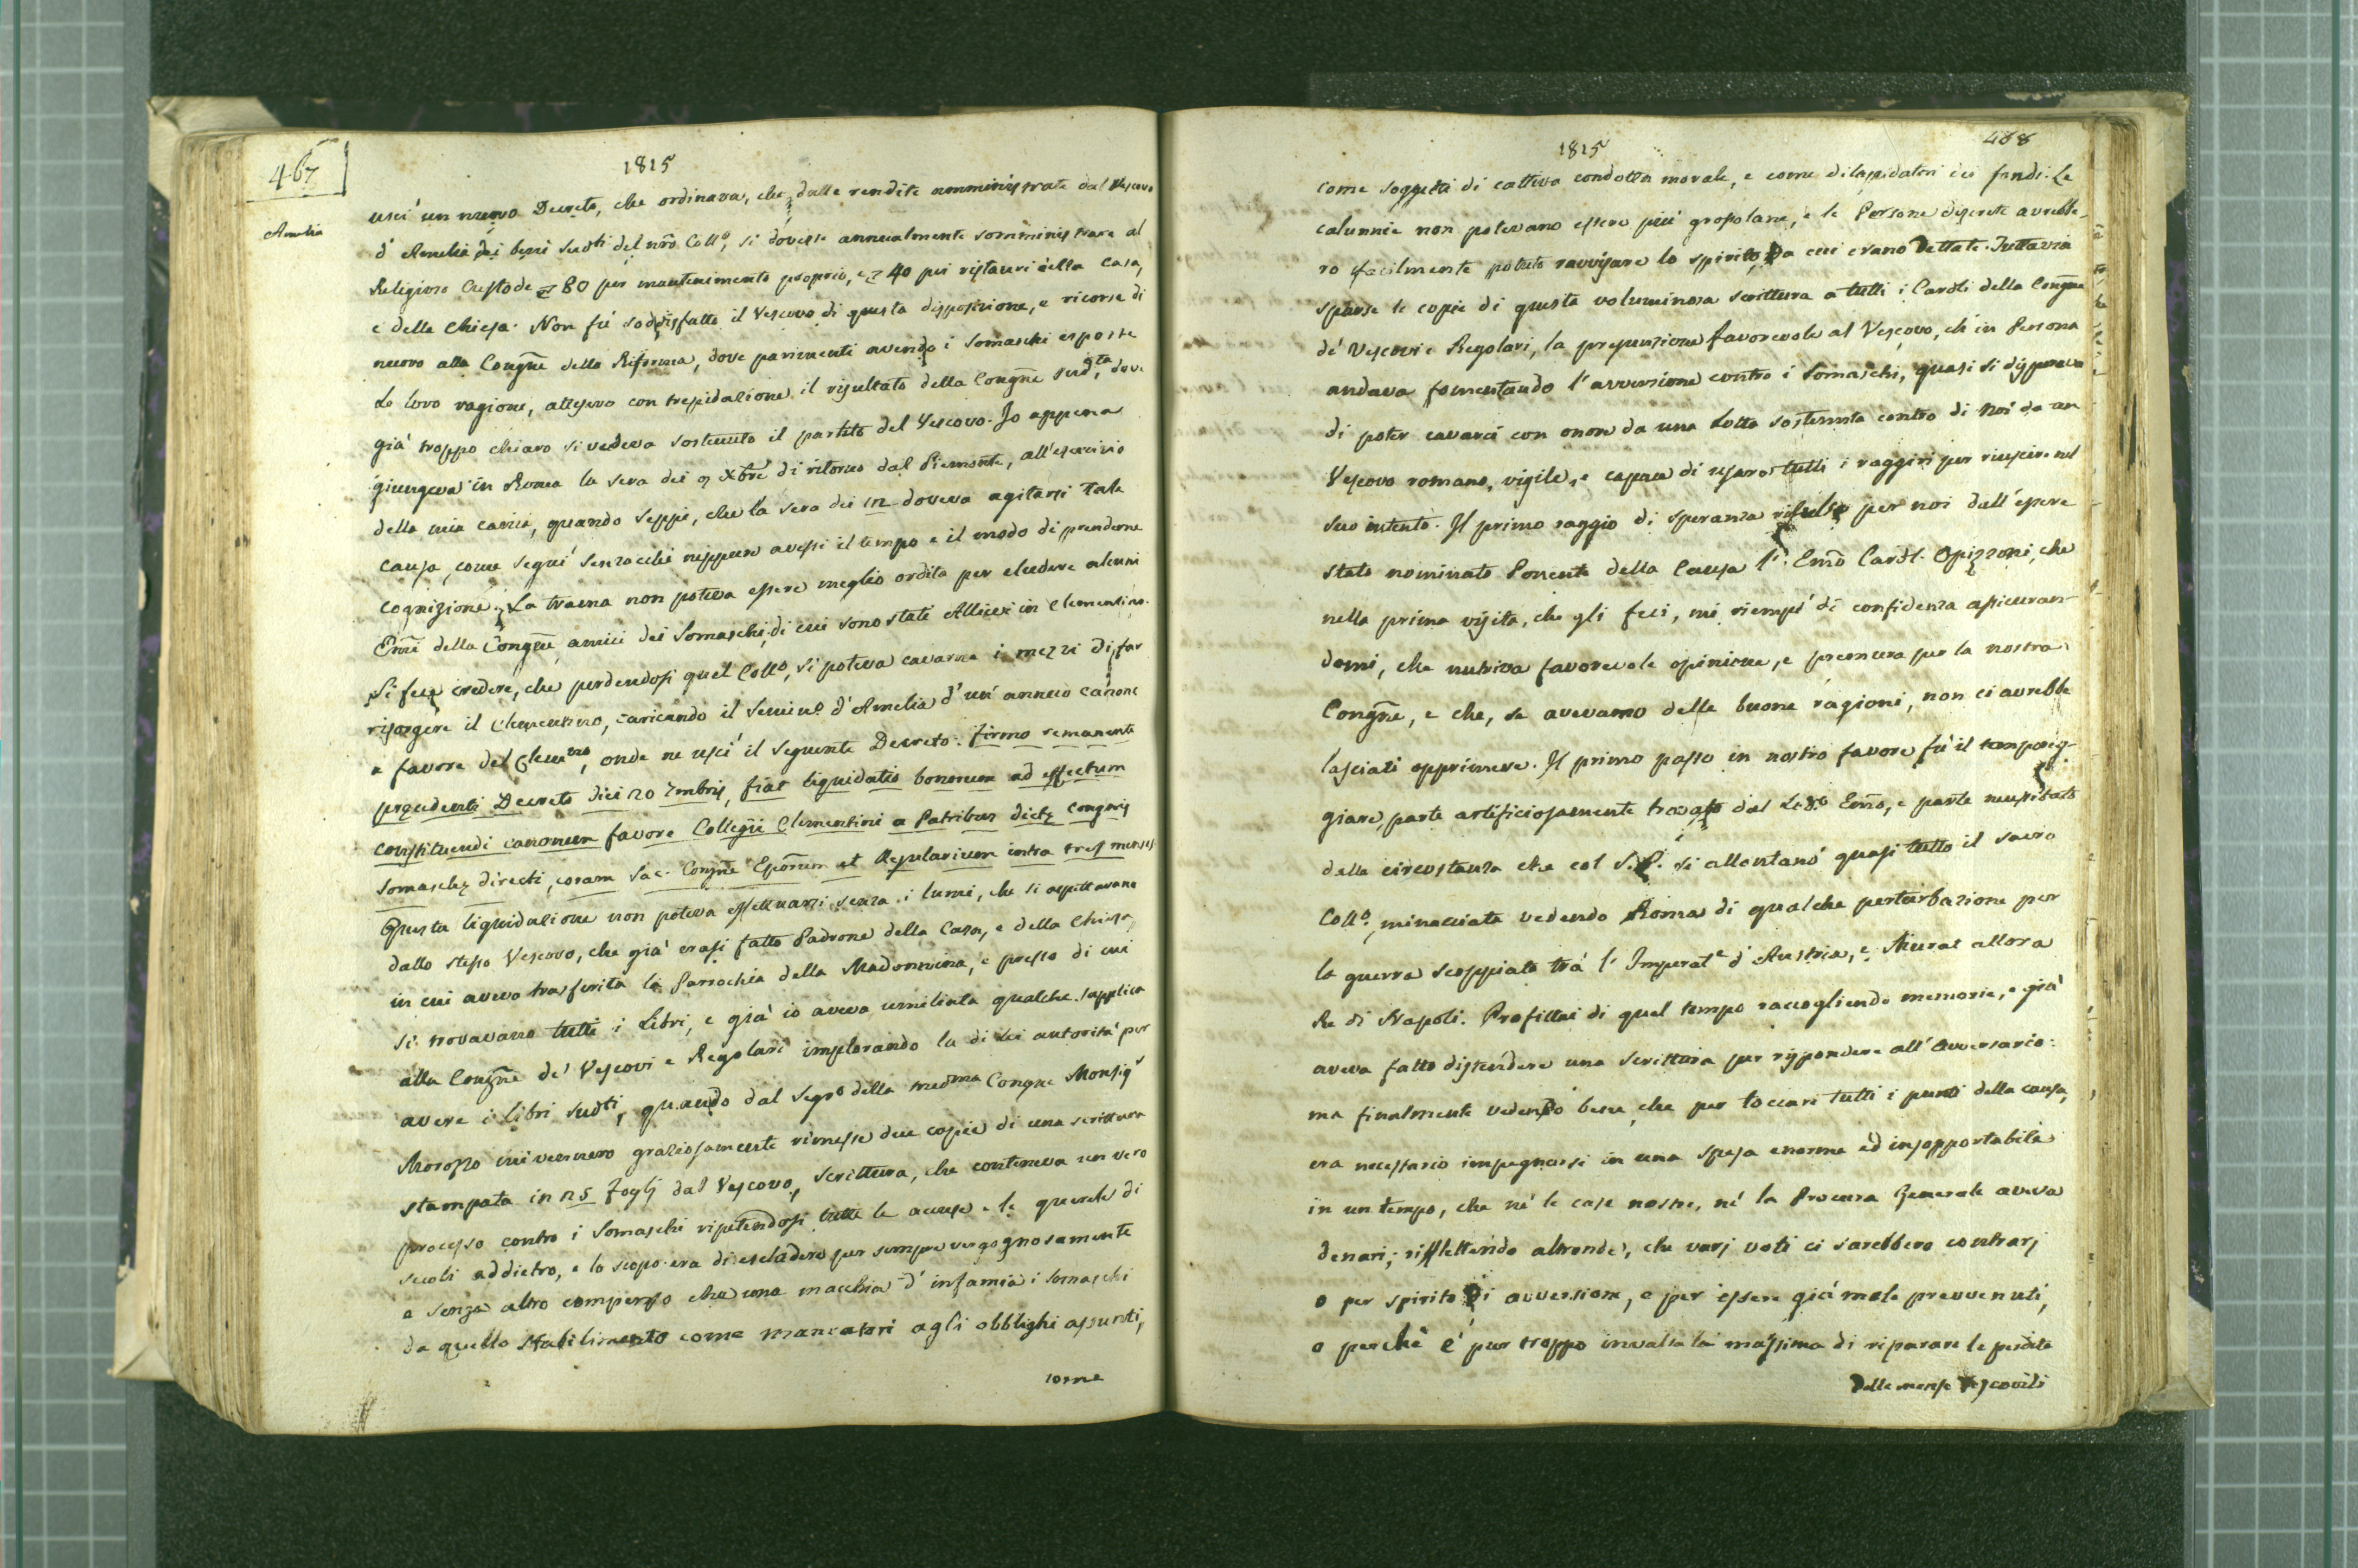 467
1815
Amelia
uscì un nuovo Decreto, che ordinava, che dalle rendite amministrate dal Vescovo
d'Amelia dei beni sudti del nro Collo, si dovesse annualmente somministrare al
Religioso Custode 80 per mantenimento proprio, e 40 pei ristauri della Casa,
e della Chiesa. Non fù soddisfatto il Vescovo di questa disposizione, e ricorse di
nuovo alla Congne della Riforma, dove parimenti avendo i Somaschi esposte
Le loro ragioni, attesero con trepidazione il risultato della Congne sudta, dove
già troppo chiaro si vedeva sostenuto il partito del Vescovo. Io appena
giungeva in Roma la sera dei 9 Xbre di ritorno dal Piemonte, all'esercizio
della mia carica, quando seppi, che la sera dei 12 doveva agitarsi tale
causa, come seguì senzacchè neppure avessi il tempo e il modo di prenderne
cognizione. La trama non poteva essere meglio ordita per eludere alcuni
Emi della Congne amici dei Somaschi, di cui sono stati Allievi in Clementino.
Si fece credere, che perdendosi quel Collo, si poteva cavarne i mezzi di far
risorgere il Clementino, caricando il Semino d'Amelia d'un annuo canone
a favore del Clemno, onde ne uscì il seguente Decreto: firmo remanente
precedenti Decreto diei 20 7mbris, fiat liquidatio bonorum ad effectum
constituendi canonem favore Collegii Clementini a Patribus dictę Congnis
Somaschę directi, coram Sac. Congne Eporum et Regularium intra tres menses.
Questa liquidazione non poteva effettuarsi senza i lumi, che si aspettavano
dallo stesso Vescovo, che già erasi fatto Padrone della Casa, e della Chiesa,
in cui aveva trasferita la Parrochia della Madonnina, e presso di cui
si trovavano tutti i Libri, e già io aveva umiliata qualche supplica
alla Congne de' Vescovi e Regolari implorando la di Lei autorità per
avere i Libri sudti, quando dal Segro della medma Congne Monsigr
Morozzo mi vennero graziosamente rimesse due copie di una scrittura
stampata in 25 foglj dal Vescovo, scrittura, che conteneva un vero
processo contro i Somaschi ripetendosi tutte le accuse e le querele di
secoli addietro, e lo scopo era di escludere per sempre vergognosamente
e senza altro compenso che una macchia d'infamia i Somaschi
da quello Stabilimento come mancatori agli obblighi assunti,
come
1815
468
come soggetti di cattiva condotta morale, e come dilapidatori dei fondi. Le
calunnie non potevano essere più grossolane, e le Persone discrete avrebbe-
ro facilmente potuto ravvisare lo spirito da cui erano dettate. Tuttavia
sparse le copie di questa voluminosa scrittura a tutti i Cardli della Congne
de' Vescovi e Regolari, la prevenzione favorevole al Vescovo, ch'in Persona
andava fomentando l'avversione contro i Somaschi, quasi si disperava
di poter cavarci con onore da una Lotta sostenuta contro di Noi da un
Vescovo romano, vigile, e capace di usare tutti i raggiri per riuscire nel
suo intento. Il primo raggio di speranza rifulse per noi dall'essere
stato nominato Ponente della Causa l'Emo Cardl. Opizzoni, che
nella prima visita, che gli feci, mi riempì di confidenza assicuran-
domi, che nutriva favorevole opinione, e premura per la nostra
Congne, e che, se avevamo delle buone ragioni, non ci avrebbe
lasciati opprimere. Il primo passo in nostro favore fù il temporeg-
giare, parte artificiosamente trovato dal Lodo Emo, e parte necessitato
dalla circostanza che col S.P. si allontanò quasi tutto il sacro
Collo, minacciata vedendo Roma di qualche perturbazione per
la guerra scoppiata trà l'Imperate d'Austria, e Murat allora
Re di Napoli. Profittai di quel tempo raccogliendo memorie, e già
aveva fatto distendere una scrittura per rispondere all'avversario:
ma finalmente vedendo bene, che per toccare tutti i punti della causa,
era necessario impegnarsi in una spesa enorme ed insopportabile
in un tempo, che nè le case nostre, nè la Procura Generale aveva
denari; riflettendo altronde, che varj voti ci sarebbero contrarj
o per spirito di avversione, o per essere già male prevvenuti,
o perchè è pur troppo invalsa la massima di riparare le perdite
delle mense Vescovili